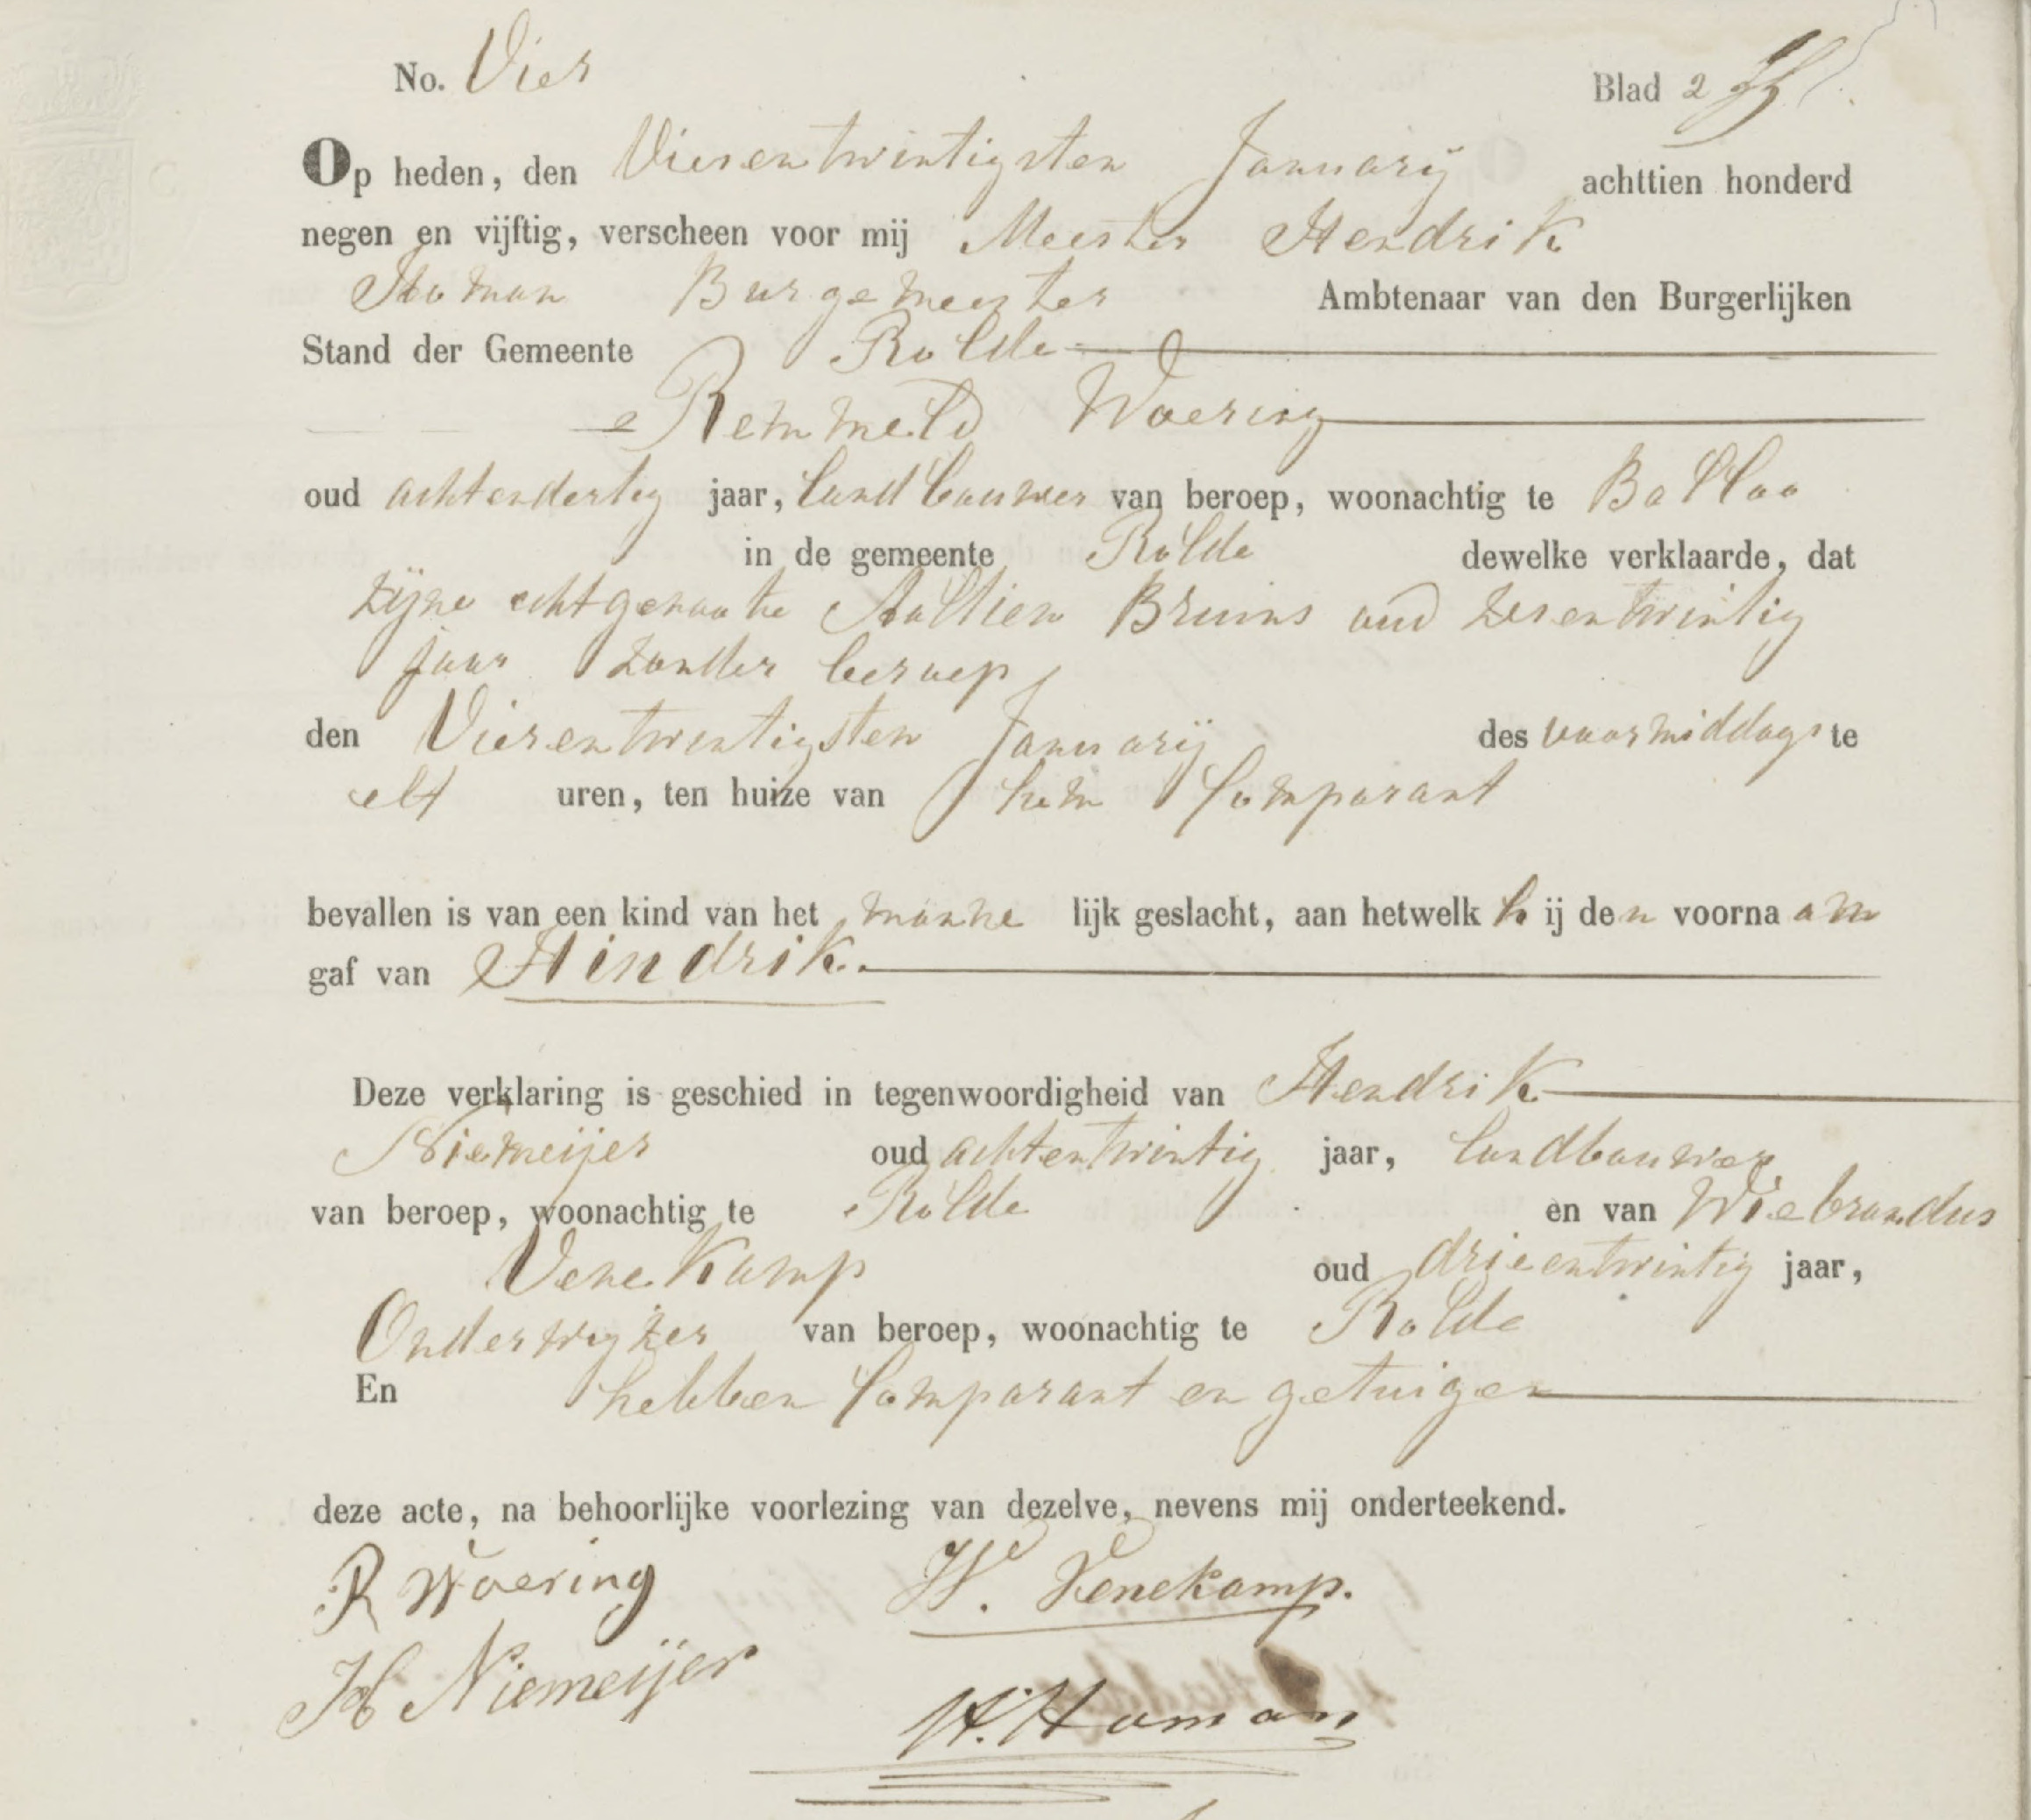 No. Vier Blad 2
Op heden, den Vierentwintigsten Januarij achttien honderd
negen en vijftig, verscheen voor mij Meester Hendrik
Homan Burgemeester Ambtenaar van den Burgerlijken
Stand der Gemeente Rolde
Remmeld Woering
oud achtendertig jaar, landbouwer van beroep, woonachtig te Balloo
in de gemeente Rolde dewelke verklaarde, dat
zijne echtgenoote Aaltien Bruins oud zesentwintig
jaar zonder beroep
den Vierentwintigsten Januarij des voormiddags te
elf uren, ten huize van hem Comparant
bevallen is van een kind van het manne lijk geslacht, aan hetwelk h ij den voorna am
gaf van Hindrik.
Deze verklaring is geschied in tegenwoordigheid van Hendrik
Niemeijer oud achtentwintig jaar, landbouwer
van beroep, woonachtig te Rolde en van Wiebrandus
Venekamp oud drieentwintig jaar,
Onderwyzer van beroep, woonachtig te Rolde
En hebben Comparant en getuigen
deze acte, na behoorlijke voorlezing van dezelve, nevens mij onderteekend.
R Woering W. Venekamp.
H Niemeijer
H. Homan